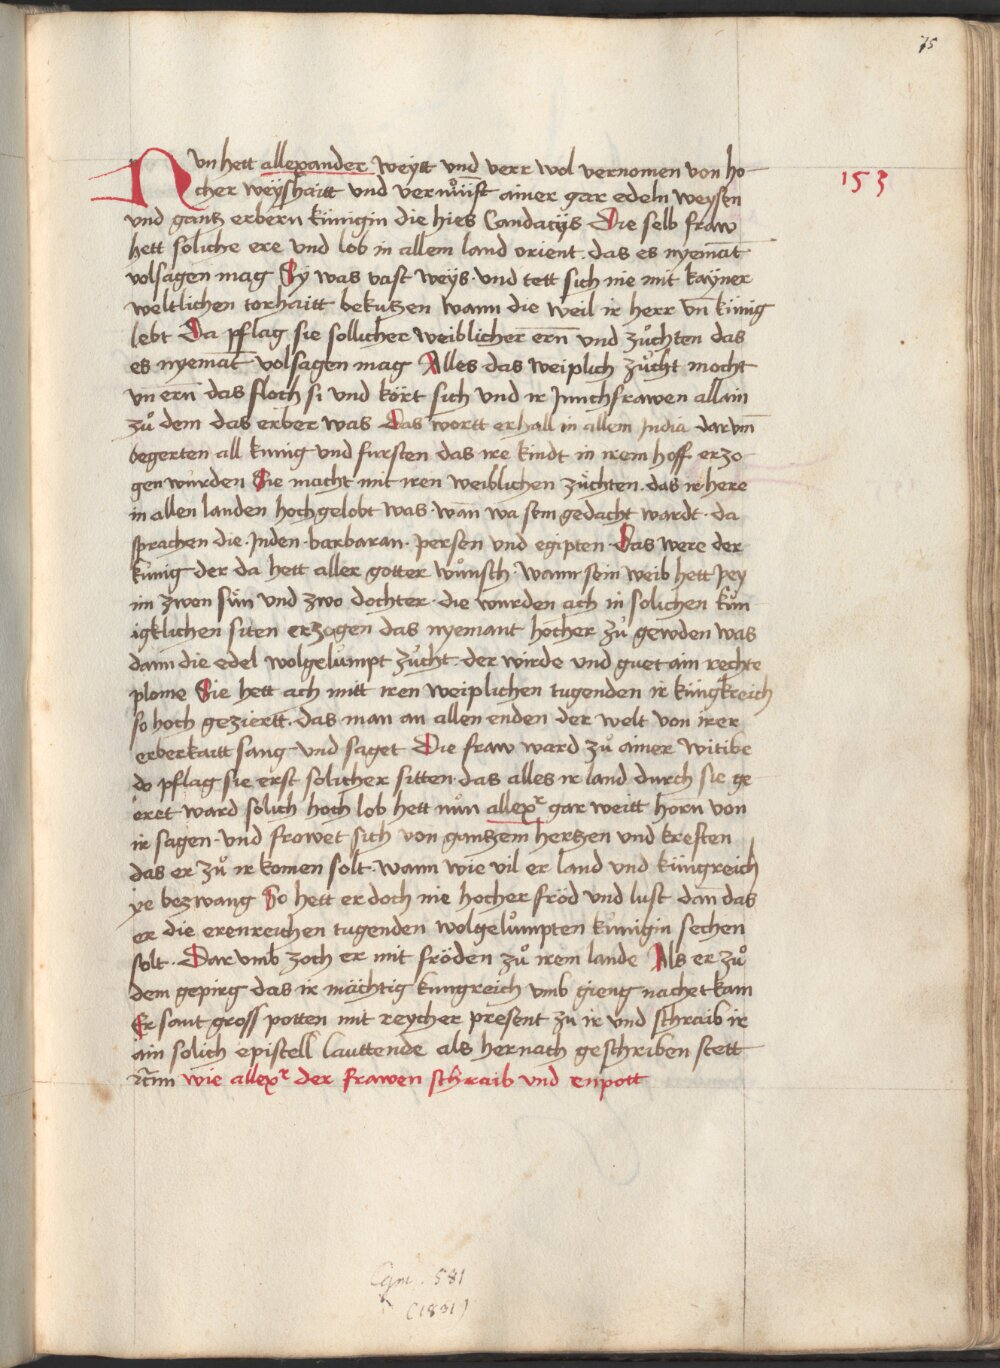 75
153
Nun hett allexander weytt vnd verr wol vernomen von ho-
cher weyßhaitt vnd vernůnft ainer gar edeln weysen
vnd gantz erbern künigin die hies Candacÿs Die selb fraw
hett soliche ere vnd lob in allem land orient · das es nyemāt
volsagen mag Sy was vast weÿs · vnd tett sich nie mit kayner
weltlichen torhaitt bekutzen wann die weil ir herr vn̄ künig
lebt Da pflag sie sollicher weiblicher ern̄ vnd zůchten das
es nyemāt volsagen mag Alles das weiplich zůcht mocht
vn ern̄ das floch si vnd kört sich vnd ir junchfrawen allain
zů dem das erber was Das wortt erhall in allem India darum̄
begerten all kunig vnd fursten das ire kindt in irem hoff erzo
gen wurden Sie macht mit iren weiblichen zůchten · das ir here
in allen landen hochgelobt was · wān wa sein gedacht wardt · da
sprachen die · Inden · barbaran · persen vnd egipten · Das were der
künig der da hett aller gotter wůnsch · wann sein weib hett pey
im zwen sůn vnd zwo dochter · die wurden ach in solichen kün
igklichen siten erzogen das nyemant hocher zů gewden was
dann die edel wolgelumpt zůcht · der wirde vnd guet ain rechte
plome Sie hett ach mitt iren weiplichen tugenden ir küngkreich
so hoch geziertt · das man an allen enden der welt von irer
erberkaitt sang vnd saget Die fraw ward zů ainer witibe
do pflag sie erst solicher sitten · das alles ir land durch sie ge
eret ward solich hoch lob hett nůn allexr gar weitt horn von
ir sagen · vnd frowet sich von gantzem hertzen vnd kreften
das er zů ir komen solt · wann wie vil er land vnd küngreich
ye bezwang So hett er doch nie hocher fröd vnd lust dan̄ das
er die erenreichen tugenden wolgelůmpten künigin sechen
solt · Dar vmb zoch er mit fröden zů irem lande Als er zů
dem gepirg das ir mächtig kungreich vmb gieng nachet kam
Er sant gross potten mit reycher present zu ir vnd schraib ir
ain solich epistell lauttende als hernach geschriben stett
wie allexr der frawen schraib vnd enpott
Cgm. 581
(1831)